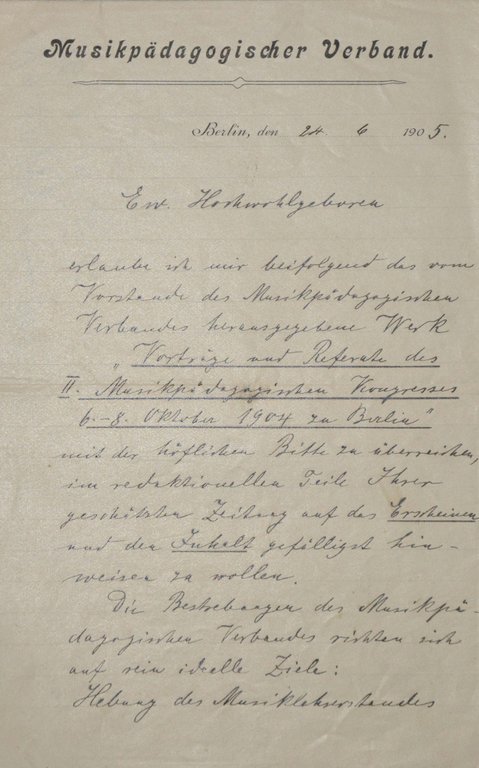 Musikpädagogischer Verband.
Berlin, den 24. 6 1905.
Ew. Hochwohlgeboren
erlaube ich mir beifolgend das vom
Vorstande des Musikpädagogischen
Verbandes herausgegebene Werk
„Vorträge und Referate des
II. Musikpädagogischen Kongresses
6.-8. Oktober 1904 zu Berlin"
mit der höflichen Bitte zu überreichen,
im redaktionellen Teile Ihrer
geschätzten Zeitung auf das Erscheinen
und den Inhalt gefälligst hin-
weisen zu wollen.
Die Bestrebungen des Musikpä-
dagogischen Verbandes richten sich
auf rein ideelle Ziele:
Hebung des Musiklehrerstandes